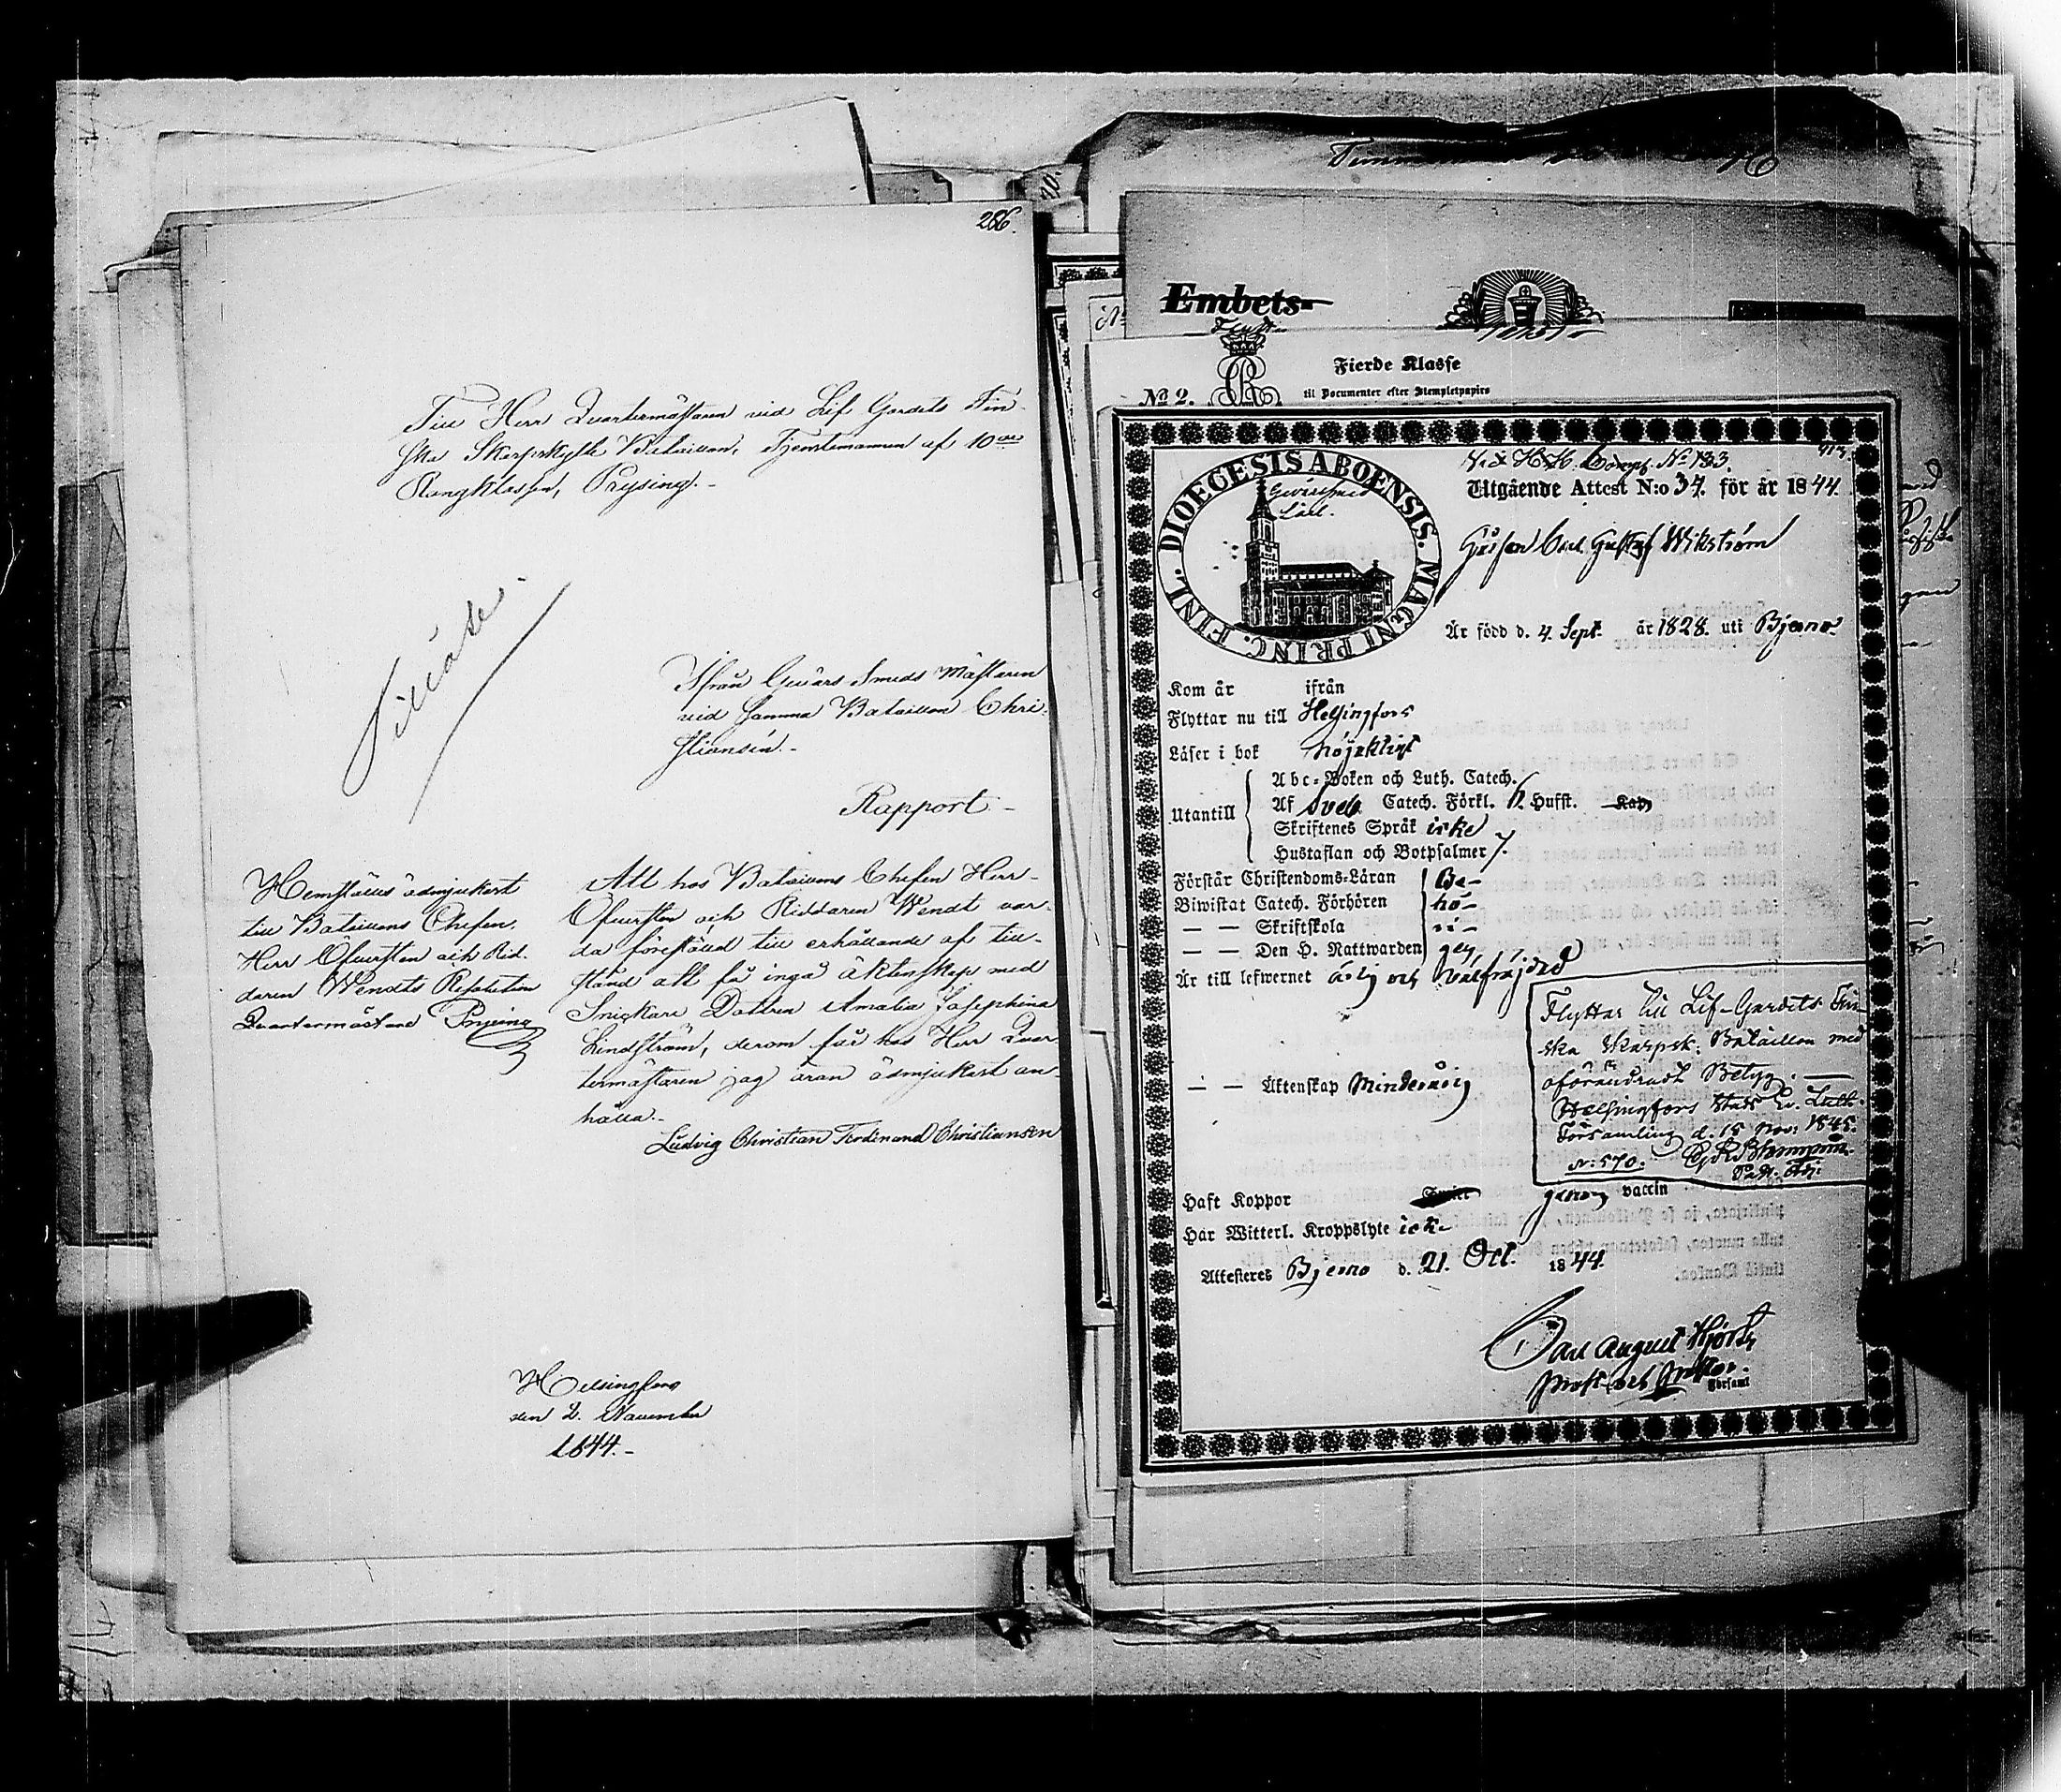 286.
Till Herr Quartermästaren vid Lif Gardets Fin-
ska Skarpskytte Bataillon, Tjenstemannen af 10de
Rangklassen, Prysing.-
Tillåtes.
Ifrån Gevärs Smeds Mästaren
vid samma Bataillon Chri-
stiansén.-
Rapport-
Hemställes ödmjukast
till Bataillons Chefen,
Herr Öfversten och Rid-
daren Wendts Resolution
Quartermästare Prysing
Att hos Bataillons Chefen Herr
Öfversten och Riddaren Wendt var-
da föreställd till erhållande af till-
stånd att få ingå äktenskap med
Snickare Dottren Amalia Josephina
Lindström, derom får hos Herr Quar-
termästaren jag äran ödmjukast an-
hålla.-
Ludvig Christian Ferdinand Christiansen
Helsingfors
den 2. November
1844.-
Embets-
Fierde Klasse
No 2.
till Documenter efter Stempletpapirs
DIOECESIS ABOENSIS. MAGNI PRINC. FINL.
No 133.
Utgående Attest N:o 34. för år 1844.
Gossen Carl Gustaf Wikström
Är född d. 4. Sept. år 1828. uti Bjerno.
Kom år ifrån
Flyttar nu till Helsingfors
Läser i bok nöjaktigt
Utantill
Abc-Boken och Luth. Catech.
Af Sveb. Catech. Förkl. Husst. Kap.
Skriftenes Språk icke
Hustaflan och Botpsalmer
Förstår Christendoms-Läran Be-
Biwistat Catech. Förhören hö-
— — Skriftskola ri-
— — Den H. Nattwarden gen
Är till lefwernet ärlig och välfrejdad
Flyttar till Lif-Gardets Fin-
ska Skarpsk: Bataillon med
oförändradt Betyg.—
Helsingfors Stads Ev. Luth.
Församling d. 15 Nov: 1845.
N: 570.
— — Äktenskap Minderårig
Haft Koppor genom vaccin
Har Witterl. Kroppslyte icke
Attesteres Bjerno d. 21. Oct. 1844.
Carl August Hjorth
Prost och
Församl